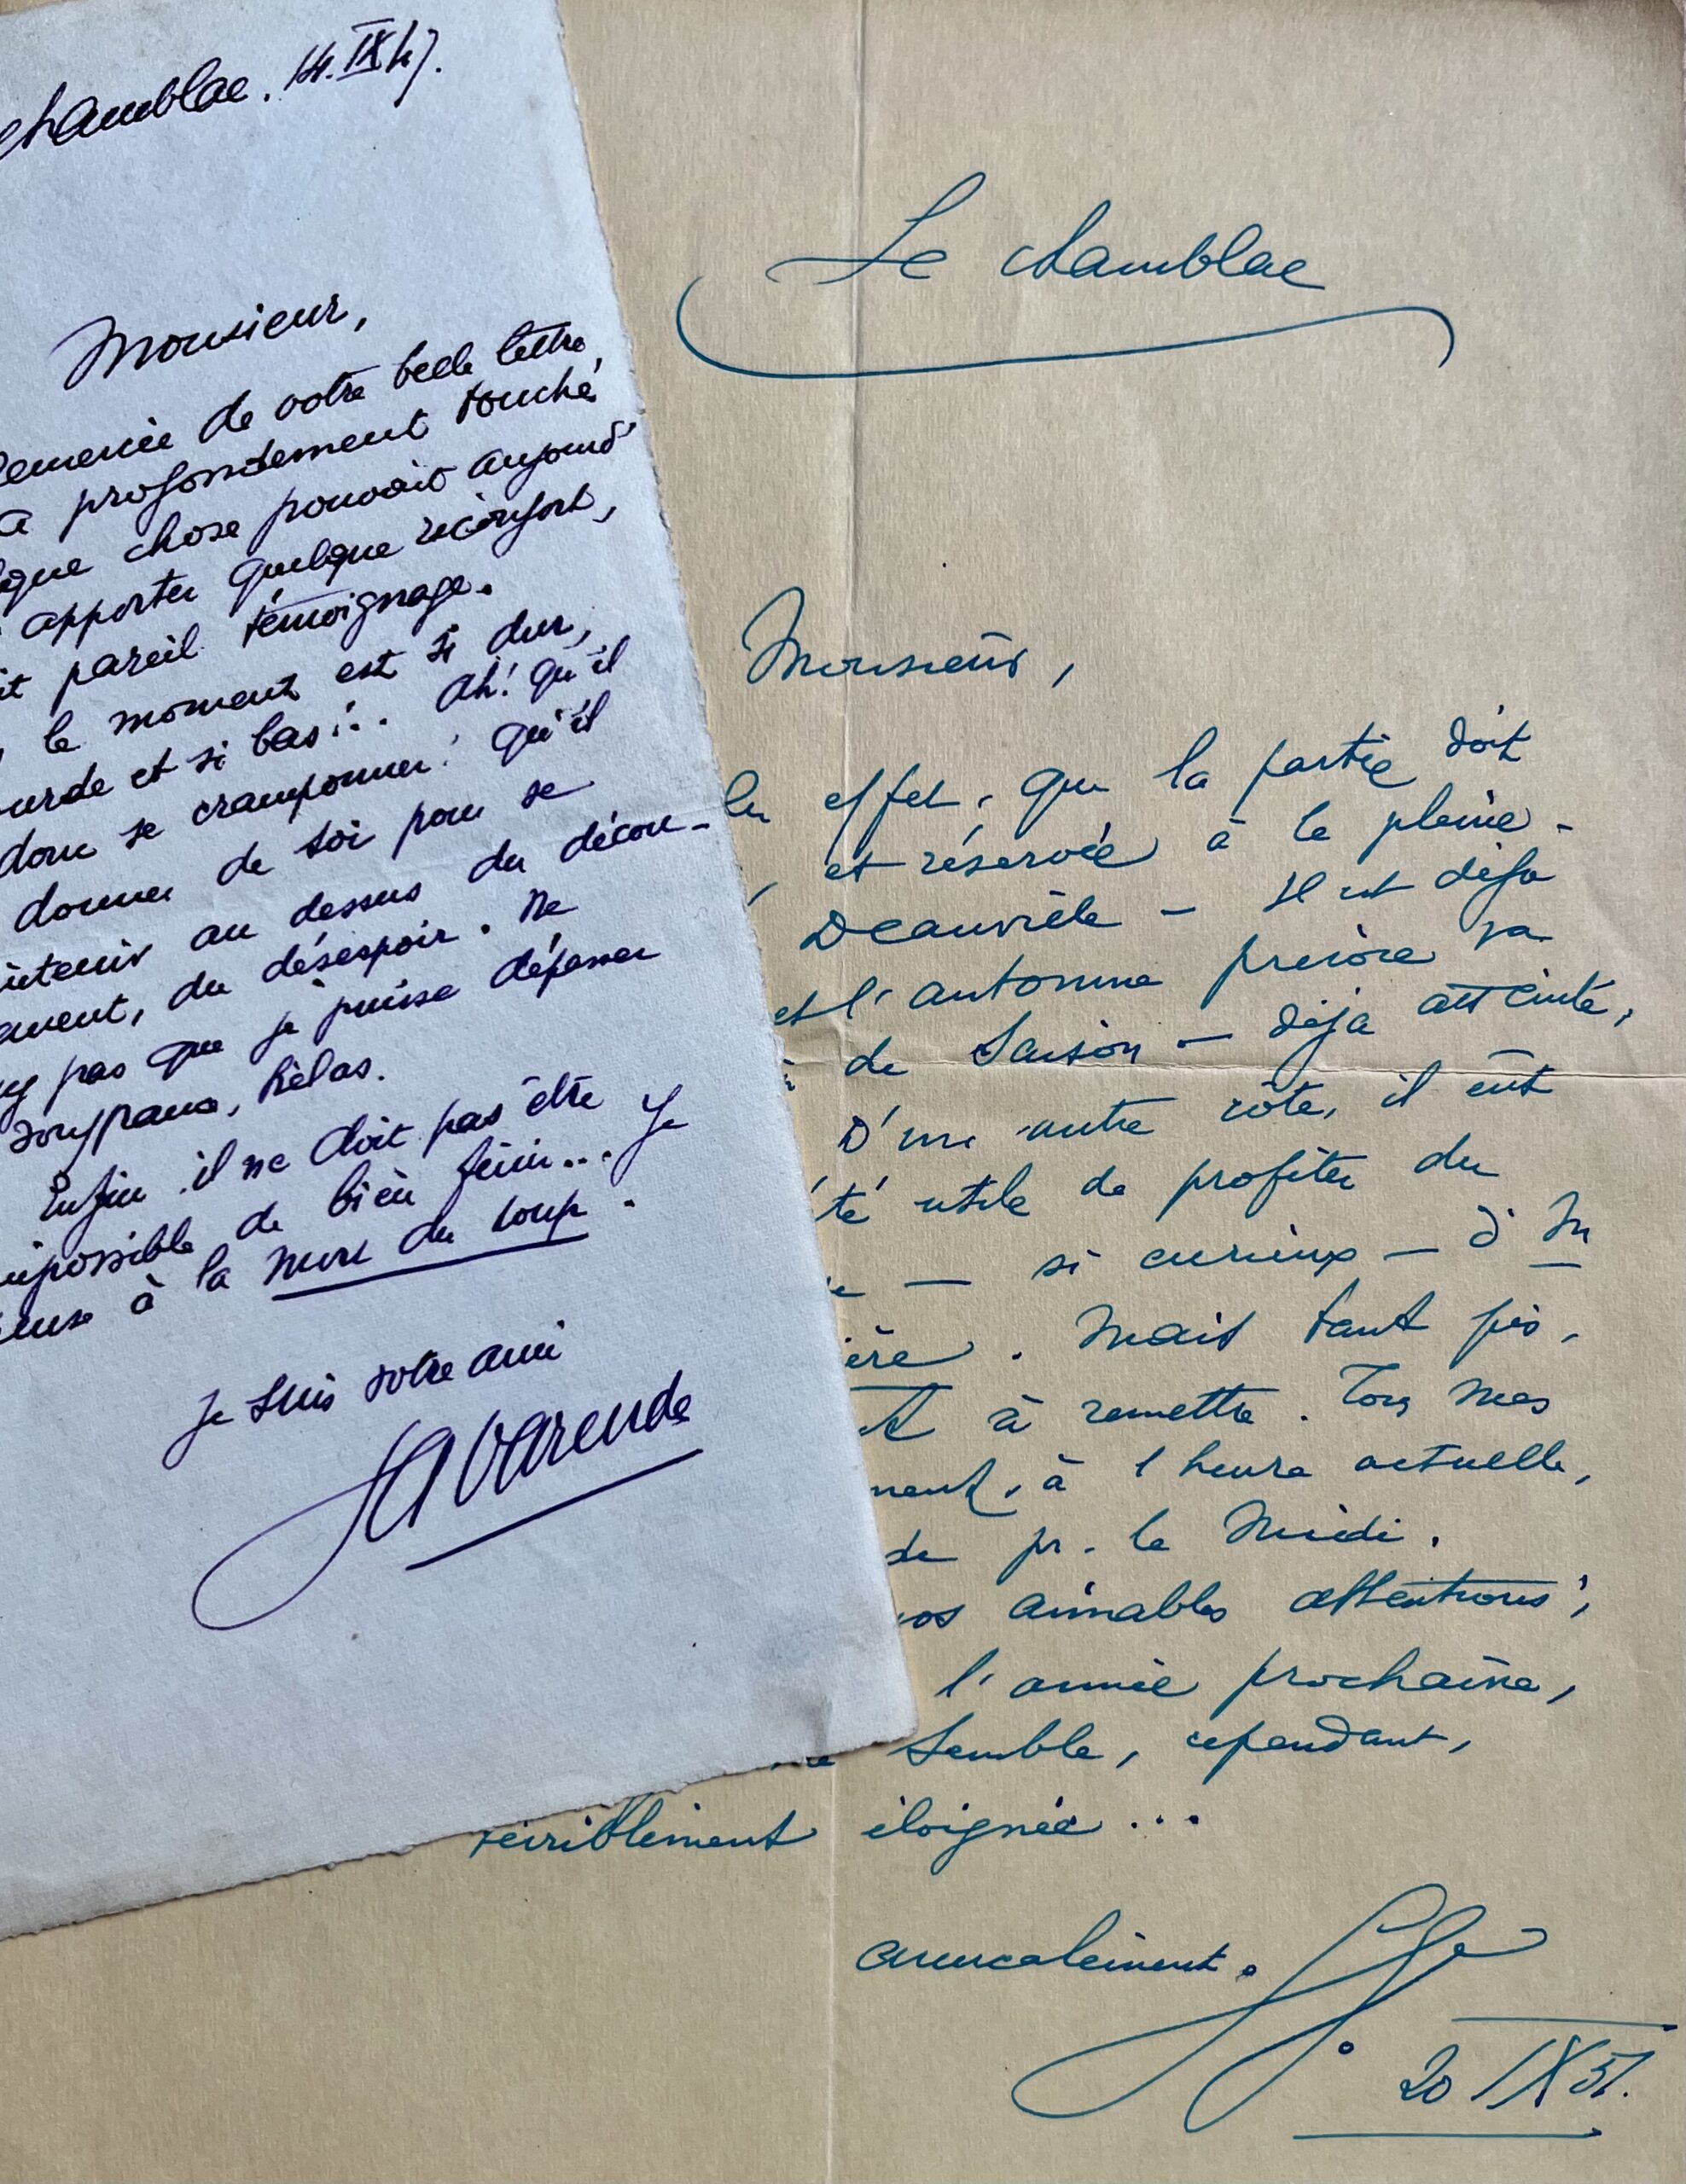 chamblac. 14.IX 47.
Monsieur,
de votre belle lettre,
a profondement touché
chose pouvait aujourd'
apporter quelque réconfort,
pareil témoignage.
le moment est si dur,
et si bas!.. Ah! qu'il
donc se cramponner! qu'il
donner de soi pour se
au dessus du décou-
du désespoir. Ne
pas que je puisse dépasser
hélas.
Enfin il ne doit pas être
de bien finir... Je
à la mort du loup.
Je suis votre ami
La Varende
Le chamblac
Monsieur,
effet, que la partie doit
et réservée à la pleine-
Deauville - Il est déjà
et l'automne précoce sa
de Saison - déjà atteinte,
D'un autre côté, il eût
té utile de profiter du
- si curieux - d'
ère. Mais tant pis,
à remettre. Tous mes
ment, à l heure actuelle,
de pr. le Midi.
vos aimables attentions;
l'année prochaine,
Semble, cependant,
terriblement éloignée...
amicalement.
20 IX 51.